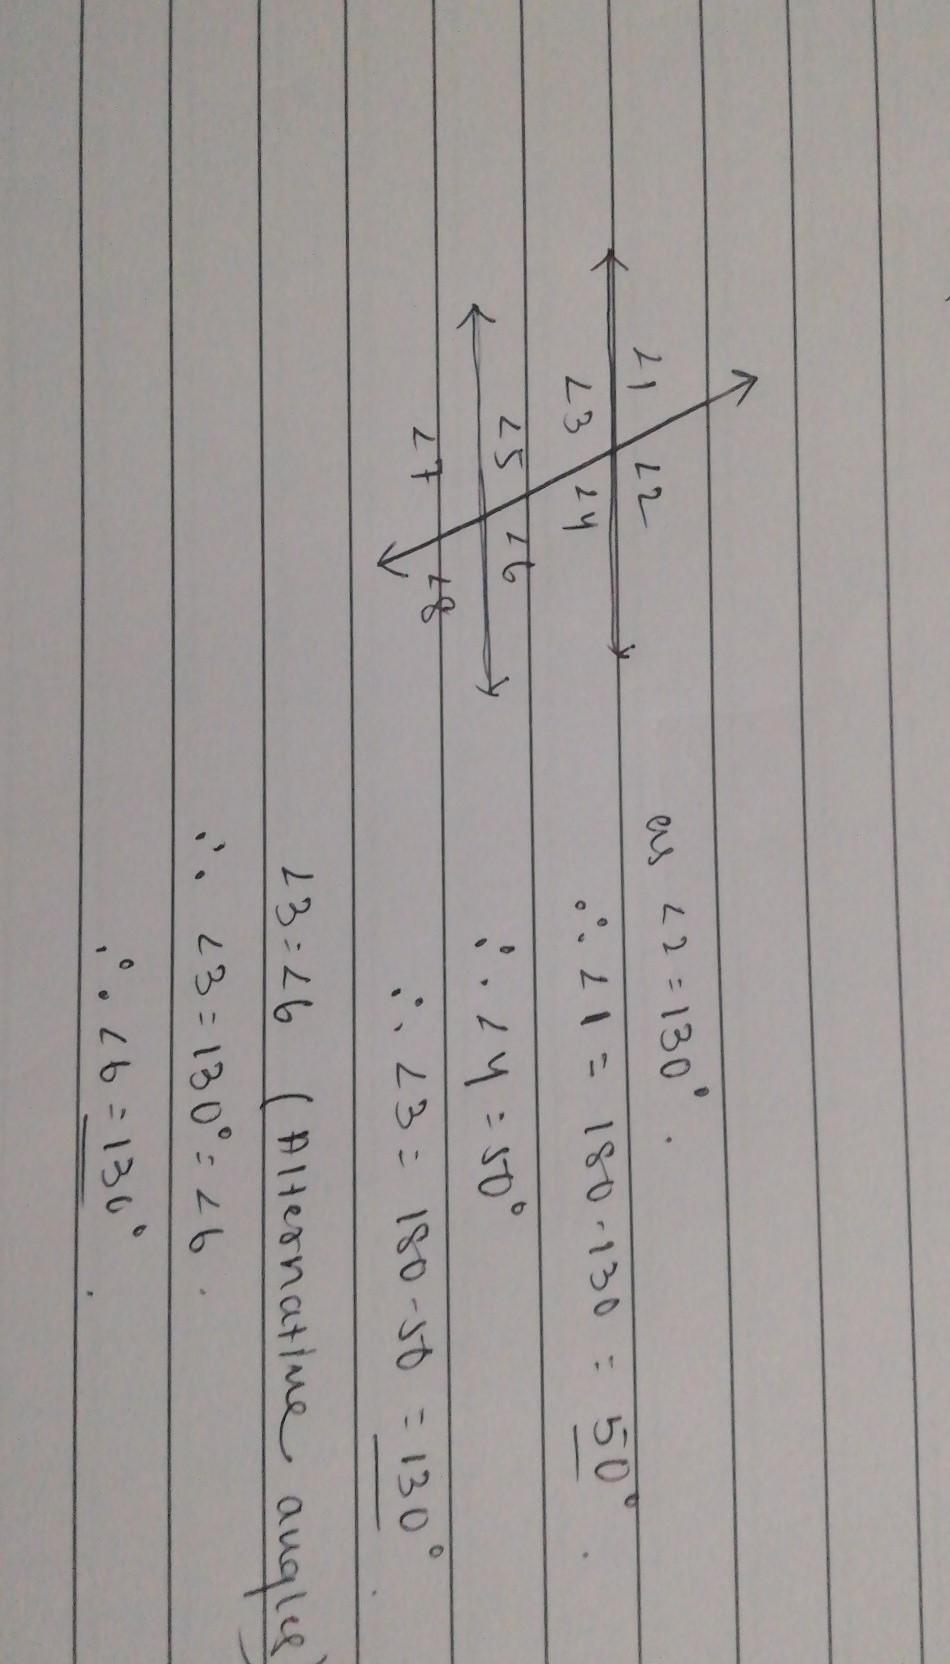 ∠1 ∠2
∠3 ∠4
∠5 ∠6
∠7 ∠8
as ∠2 = 130°.
∴ ∠1 = 180 - 130 = 50°.
∴ ∠4 = 50°
∴ ∠3 = 180 - 50 = 130°.
∠3 = ∠6 (Alternative angles)
∴ ∠3 = 130° = ∠6.
∴ ∠6 = 130°.